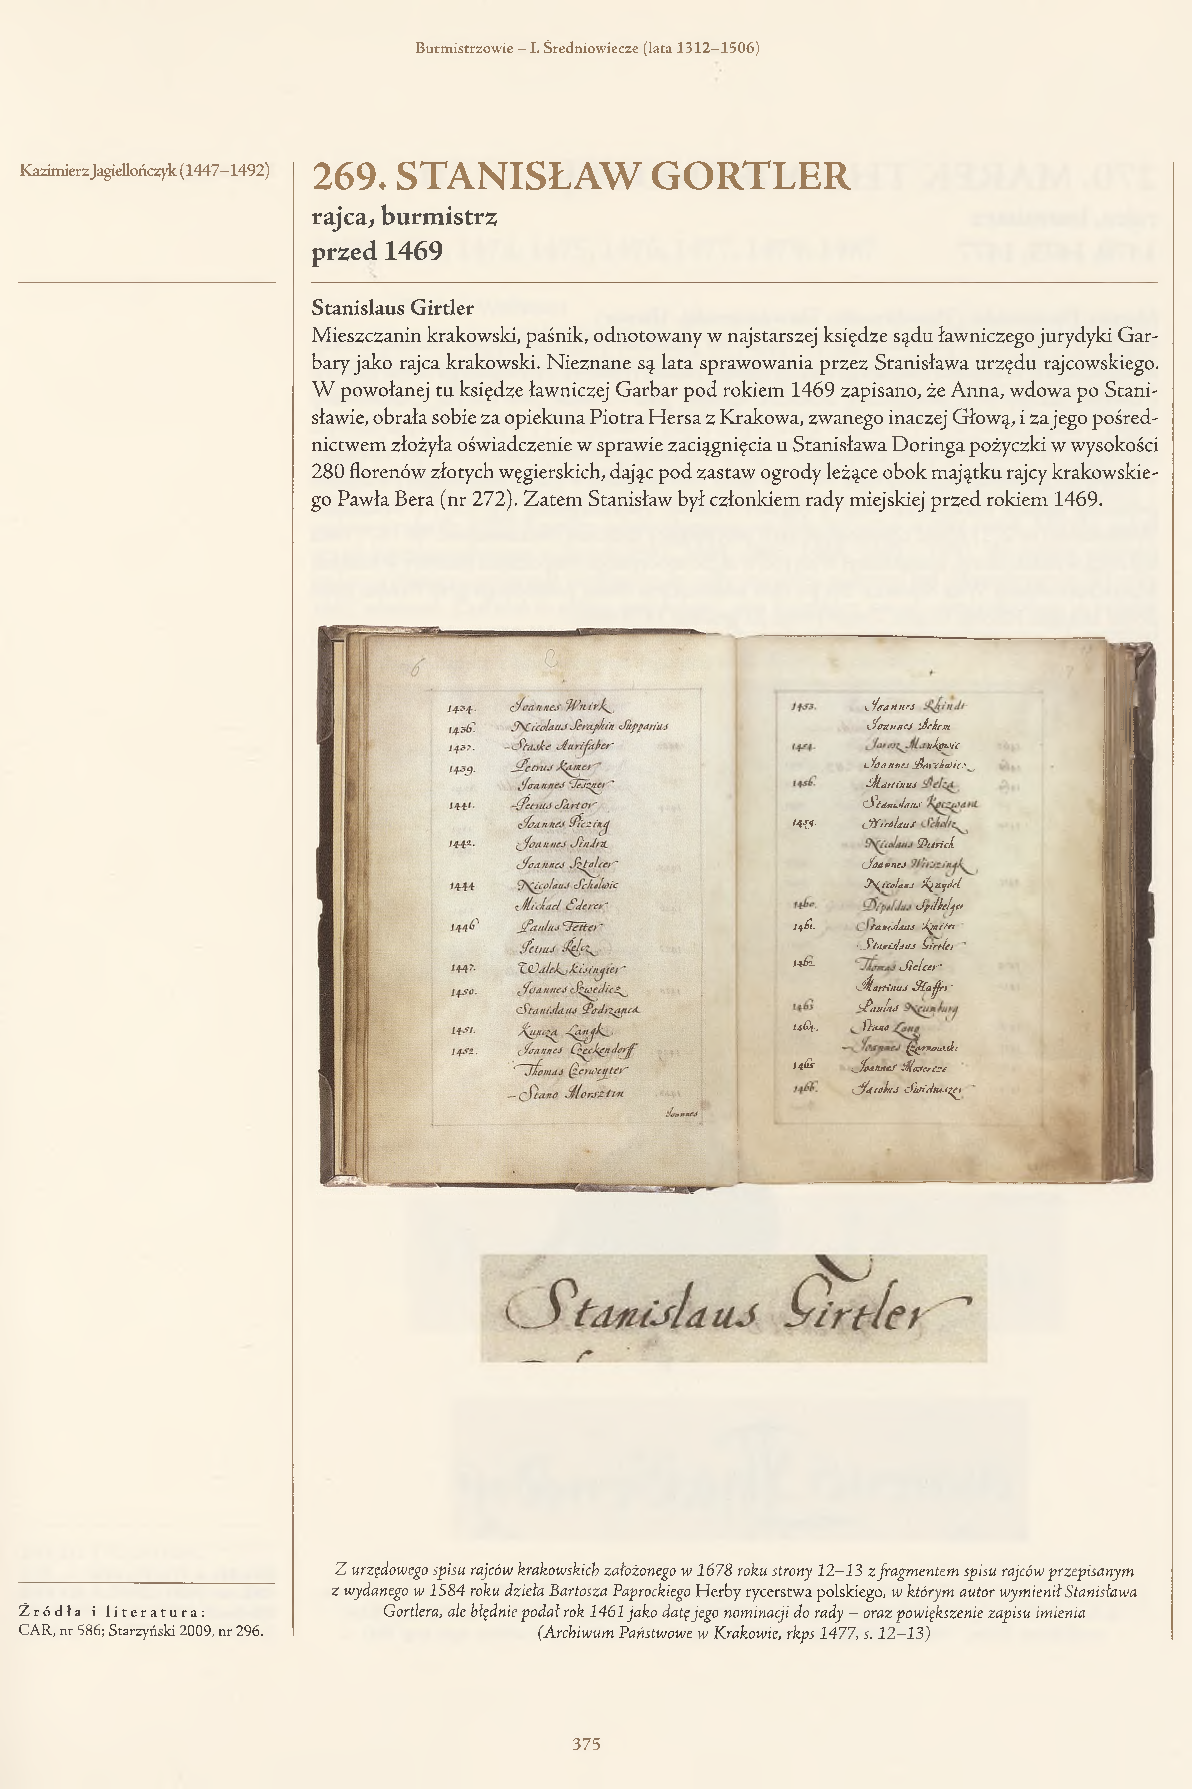 Burmistrzowie – I. Średniowiecze (lata 1312–1506)
Kazimierz Jagiellończyk (1447–1492)
269. STANISŁAW GORTLER
rajca, burmistrz
przed 1469
Stanislaus Girtler
Mieszczanin krakowski, paśnik, odnotowany w najstarszej księdze sądu ławniczego jurydyki Gar-
bary jako rajca krakowski. Nieznane są lata sprawowania przez Stanisława urzędu rajcowskiego.
W powołanej tu księdze ławniczej Garbar pod rokiem 1469 zapisano, że Anna, wdowa po Stani-
sławie, obrała sobie za opiekuna Piotra Hersa z Krakowa, zwanego inaczej Głową, i za jego pośred-
nictwem złożyła oświadczenie w sprawie zaciągnięcia u Stanisława Doringa pożyczki w wysokości
280 florenów złotych węgierskich, dając pod zastaw ogrody leżące obok majątku rajcy krakowskie-
go Pawła Bera (nr 272). Zatem Stanisław był członkiem rady miejskiej przed rokiem 1469.
6
1434. Joannes Wnirk
1436. Nicolaus Seraphin Supparius
1437. – Staske Aurifaber
1439. Petrus Kamer
Joannes Teszner
1441. – Petrus Sartor
Joannes Piczing
1442. Joannes Sindra
Joannes Sztolcer
1444 Nicolaus Scholwic
Michael Ederer
1446 Paulus Tetter
Petrus Kelcz
1447. Walek Kisingier
1450. Joannes Szwedicz
Stanislaus Podrzanca
1451. Kuncza Langk
1452. Joannes Czeckendorff
Thomas Czerwenter
– Stano Morsztin
Joannes
7
1453. Joannes Rhindt
Joannes Behem
1454. Mankowic
Joannes
1456. Martinus Belza
Stanislaus
1459. Nicolaus Scholtz
Nicolaus Dietrich
Joannes Wirszingk
Nicolaus Kyngdel
1460. Spilbelger
1461. Stanislaus Kmiter
Stanislaus Girtler
1462. Thomas Sielcer
Martinus Haffer
1463 Paulus Neunburg
1464. Stano Long
– Joannes Czarnowski
1465 Joannes
1466. Jacobus Swidniszer
Stanislaus Girtler
Z urzędowego spisu rajców krakowskich założonego w 1678 roku strony 12–13 z fragmentem spisu rajców przepisanym
z wydanego w 1584 roku dzieła Bartosza Paprockiego Herby rycerstwa polskiego, w którym autor wymienił Stanisława
Gortlera, ale błędnie podał rok 1461 jako datę jego nominacji do rady – oraz powiększenie zapisu imienia
(Archiwum Państwowe w Krakowie, rkps 1477, s. 12–13)
Źródła i literatura:
CAR, nr 586; Starzyński 2009, nr 296.
375